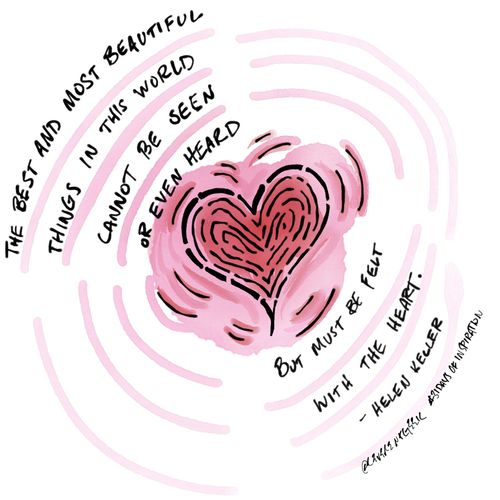 THE BEST AND MOST BEAUTIFUL
THINGS IN THIS WORLD
CANNOT BE SEEN
OR EVEN HEARD
BUT MUST BE FELT
WITH THE HEART.
- HELEN KELLER
OF INSPIRATION